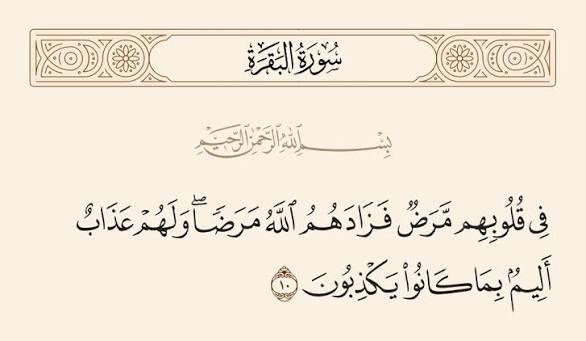 سُورَةُ البَقَرَةِ
بِسْمِ ٱللَّهِ ٱلرَّحْمَٰنِ ٱلرَّحِيمِ
فِى قُلُوبِهِم مَّرَضٌ فَزَادَهُمُ ٱللَّهُ مَرَضًاۖ وَلَهُمْ عَذَابٌ
أَلِيمٌۢ بِمَا كَانُوا۟ يَكْذِبُونَ ١٠